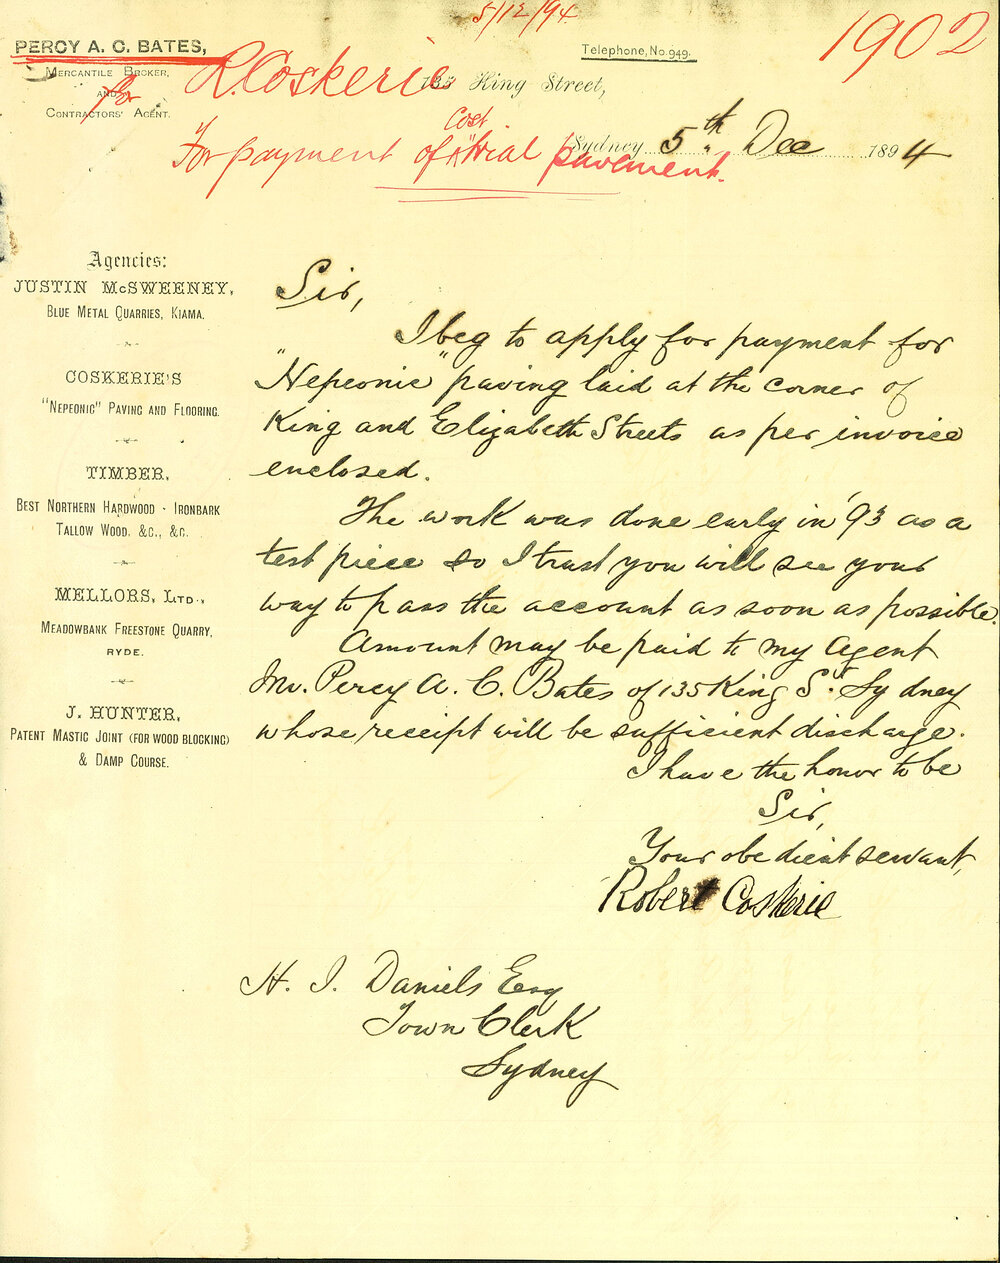 5/12/94
1902
PERCY A. C. BATES,
MERCANTILE BROKER,
AND
CONTRACTORS' AGENT.
for
R. Coskerie
Telephone, No. 949.
135 King Street,
Sydney 5th Dec 1894
For payment of cost trial pavement.
Agencies:
JUSTIN McSWEENEY,
BLUE METAL QUARRIES, KIAMA.
COSKERIE'S
"NEPEONIC" PAVING AND FLOORING.
TIMBER,
BEST NORTHERN HARDWOOD · IRONBARK
TALLOW WOOD, &C., &C.
MELLORS, LTD.,
MEADOWBANK FREESTONE QUARRY,
RYDE.
J. HUNTER,
PATENT MASTIC JOINT (FOR WOOD BLOCKING)
& DAMP COURSE.
Sir,
I beg to apply for payment for
"Nepeonic" paving laid at the corner of
King and Elizabeth Streets as per invoice
enclosed.
The work was done early in '93 as a
test piece so I trust you will see your
way to pass the account as soon as possible.
Amount may be paid to my Agent
Mr. Percy A. C. Bates of 135 King St. Sydney
whose receipt will be sufficient discharge.
I have the honor to be
Sir,
Your obedient servant,
Robert Coskerie
H. J. Daniels Esq
Town Clerk
Sydney